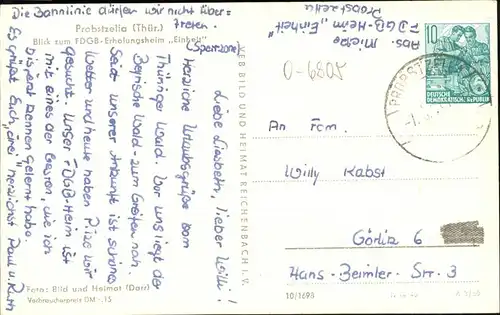 Die Bannlinie dürfen wir nicht über-
treten.
(Sperrzone)
Probstzella (Thür.)
Blick zum FDGB-Erholungsheim „Einheit"
Liebe Liesbeth, lieber Willi!
Herzliche Urlaubsgrüße vom
Thüringer Wald. Vor uns liegt der
Bayrische Wald - zum Greifen nah.
Seit unserer Ankunft ist schönes
Wetter und heute haben Pilze wir
gesucht. Unser FDGB-Heim ist
mit eines der besten, die ich
bisher kennen gelernt habe.
Es grüßt Euch „drei" herzlichst Paul u. Ruth
Foto: Bild und Heimat (Darr)
Verbraucherpreis DM -,15
VEB BILD UND HEIMAT REICHENBACH I. V.
10/1698
Abs. Mietke
FDGB-Heim „Einheit"
Probstzella
O-6805
10
DEUTSCHE
DEMOKRATISCHE REPUBLIK
PROBSTZELLA
An Fam.
Willy Kabst
Görlitz 6
Hans-Beimler-Str. 3